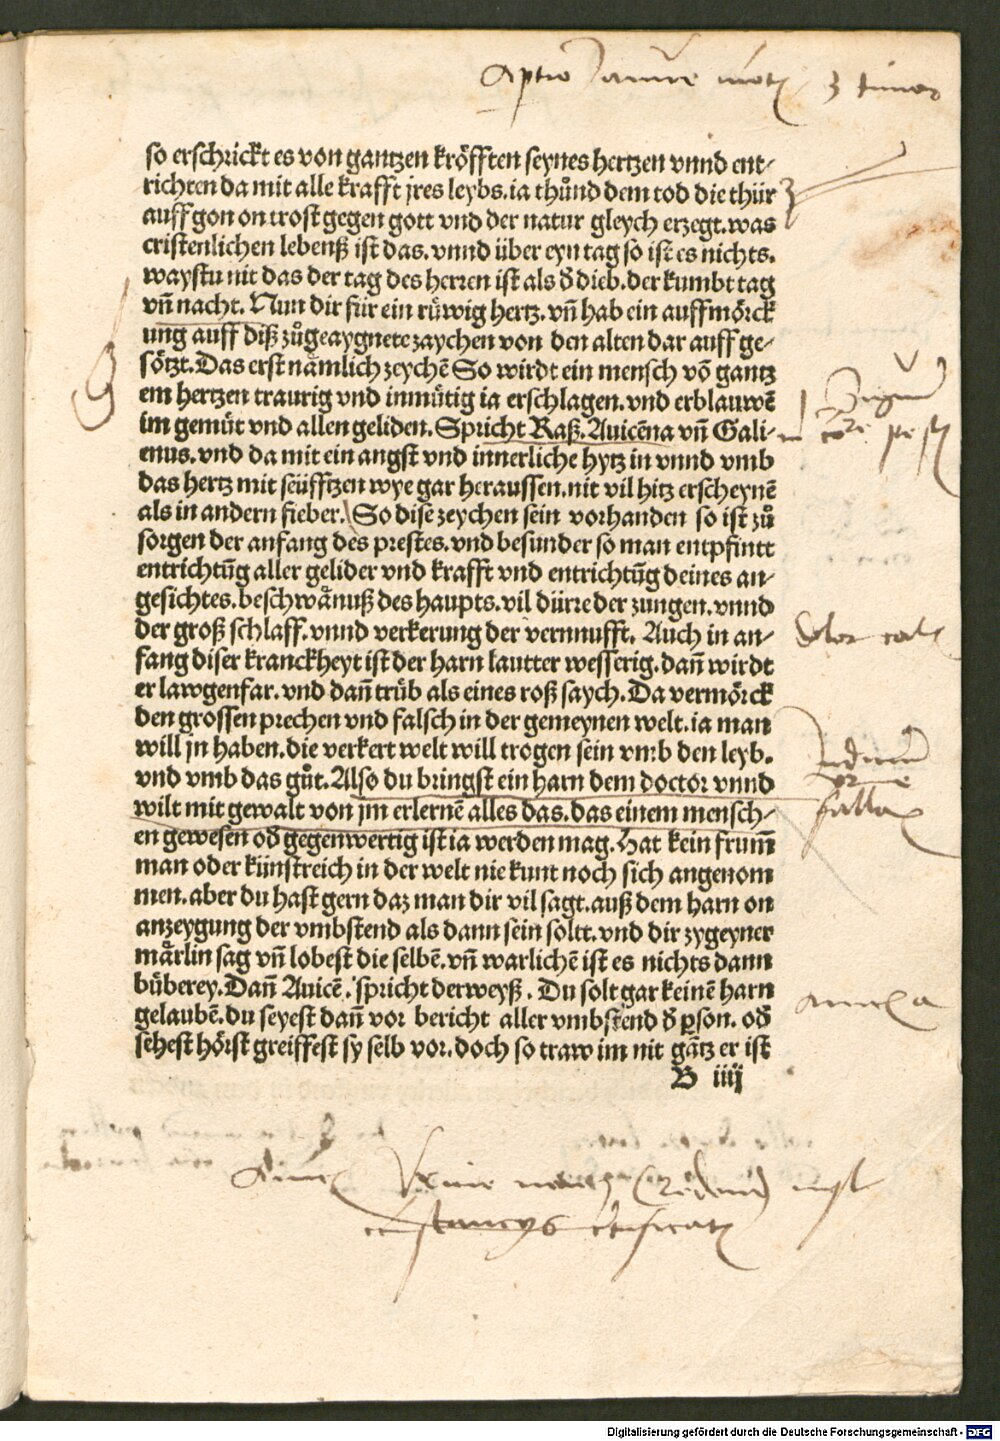 so erschrickt es von gantzen kröfften seynes hertzen vnnd ent⸗
richten da mit alle krafft jres leybs. ia thůnd dem tod die thür
auff gon on trost gegen gott vnd der natur gleych erzegt. was
cristenlichen lebenß ist das. vnnd über eyn tag so ist es nichts.
waystu nit das der tag des herren ist als d̕ dieb. der kumbt tag
vn̄ nacht. Nun dir für ein rüwig hertz. vn̄ hab ein auffmörck
ung auff diß zůgeaygnete zaychen von den alten dar auff ge⸗
sötzt. Das erst nämlich zeychē So wirdt ein mensch vō gantz
em hertzen traurig vnd inmütig ia erschlagen. vnd erblauwē
im gemüt vnd allen geliden. Spricht Raß. Auicēna vn̄ Gali⸗
enus. vnd da mit ein angst vnd innerliche hytz in vnnd vmb
das hertz mit seüfftzen wye gar heraussen. nit vil hitz erscheynē
als in andern fieber. So dise zeychen sein vorhanden so ist zů
sorgen der anfang des prestes. vnd besunder so man entpfintt
entrichtūg aller gelider vnd krafft vnd entrichtūg deines an⸗
gesichtes. beschwänuß des haupts. vil dürre der zungen. vnnd
der groß schlaff. vnnd verkerung der vernnufft. Auch in an⸗
fang diser kranckheyt ist der harn lautter wesserig. dan̄ wirdt
er lawgenfar. vnd dan̄ trüb als eines roß saych. Da vermörck
den grossen prechen vnd falsch in der gemeynen welt. ia man
will jn haben. die verkert welt will trogen sein vmb den leyb.
vnd vmb das gůt. Also du bringst ein harn dem doctor vnnd
wilt mit gewalt von jm erlernē alles das. das einem mensch⸗
en gewesen od̕ gegenwertig ist ia werden mag. Hat kein frum̄
man oder künstreich in der welt nie kunt noch sich angenom
men. aber du hast gern daz man dir vil sagt. auß dem harn on
anzeygung der vmbstend als dann sein soltt. vnd dir zygeyner
märlin sag vn̄ lobest die selbē. vn̄ warlichē ist es nichts dann
büberey. Dan̄ Auicē. spricht der weyß. Du solt gar keinē harn
gelaubē. du seyest dan̄ vor bericht aller vmbstend d̕ ꝑson. od̕
sehest hörst greiffest sy selb vor. doch so traw im nit gātz er ist
B iiij
Digitalisierung gefördert durch die Deutsche Forschungsgemeinschaft - DFG